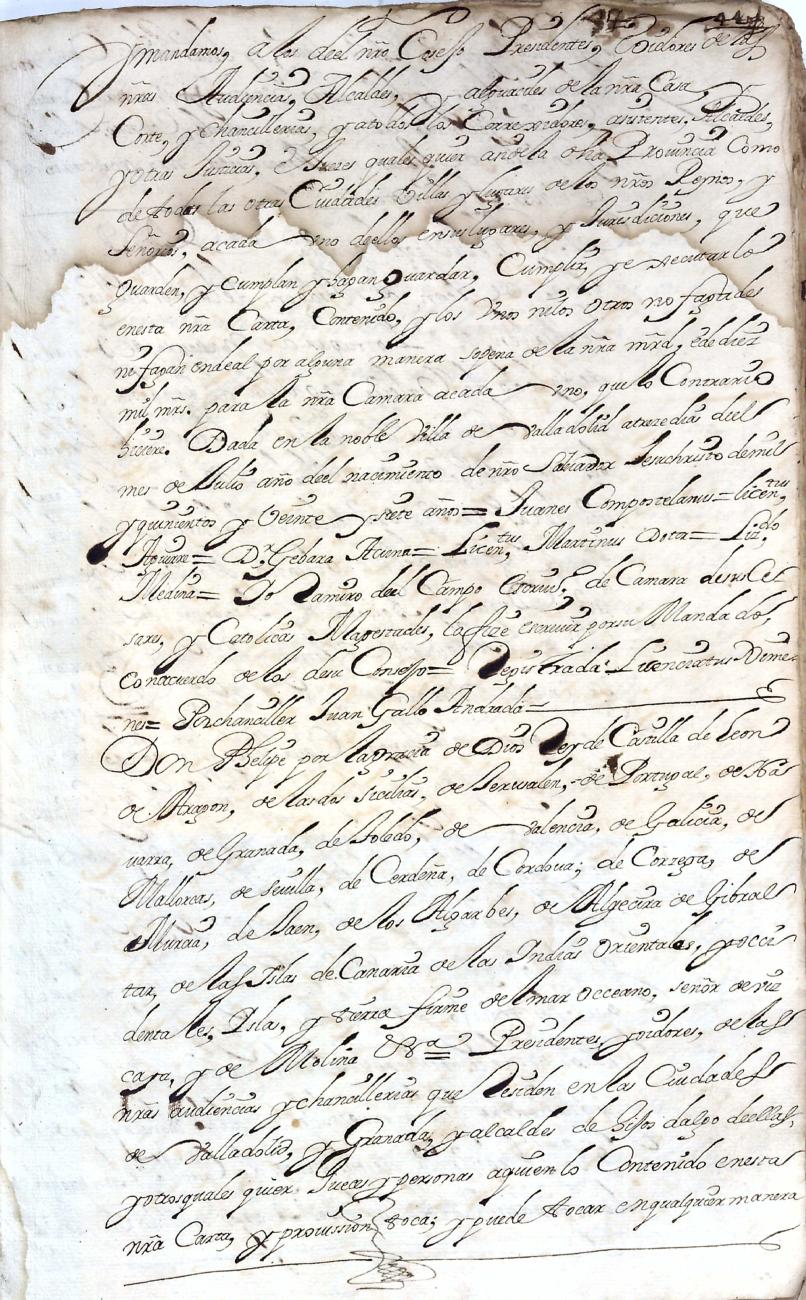 y mandamos, a los del nrõ Cosejo Presidentes, Oidores de las
nrãs Audiencias, Alcaldes, alguaciles de la nrã Casa, y
Corte, y Chancillerias, y a todos los Corregidores, asistentes, Alcaldes,
y otras Justicias, e Jueces quales quier assi de la dhã Provincia Como
de todas las otras Ciudades Villas y lugares de los nrõs Reynos, y
Señorios, a cada uno dellos en sus lugares, y Jurisdiciones, que
Guarden, y Cumplan y hagan Guardar, Cumplir, y executar lo
en esta nrã Carta, Contenido, y los Unos ni los Otros no fagades
ni fagan endeal por alguna manera sopena de la nrã mrd, e de diez
mil mrs. para la nrã Camara a cada uno, que lo Contrario
hiziere. Dada en la noble Villa de Valladolid a treze dias del
mes de Julio año del nacimiento de nrõ Salvador Jesuchristo de mil
y quinientos y Veinte y siete años = Juanes Compostelanus = licentus,
Aguirre = Dr. Gebara Acuna = Licentus, Martinus Dota = Lizdo,
Medina = Yo Ramiro del Campo Escriuo. de Camara de sus Ces
sares, y Catolicas Magestades, la fize escrivir por su Mandado,
con acuerdo de los de su Consejo = Registrada: Licenciatus Xime-
nes = Por chanciller Juan Gallo Andrada =
Don Phelipe por la gracia de Dios Rey de Castilla de Leon
de Aragon, de las dos Sicilias, de Jerusalen, de Portugal, de Na
uarra, de Granada, de Toledo, de Valencia, de Galicia, de
Mallorcas, de Sevilla, de Cerdeña, de Cordova, de Corzega, de
Murcia, de Jaen, de los Algarbes, de Algecira de Gibral
tar, de las Islas de Canaria de las Indias orientales, y occi
dentales, Islas, y tierra firme del mar occeano, señor de viz
caya, y de Molina &a = Presidentes, y oidores, de las
nrãs audiencias y chancillerias que Residen en las Ciudades
de Valladolid, y Granada, y alcaldes de hijos dalgo dellas,
y otros quales quier Jueces y personas a quien lo Contenido en esta
nrã Carta, y provission toca, y puede tocar en qualquier manera